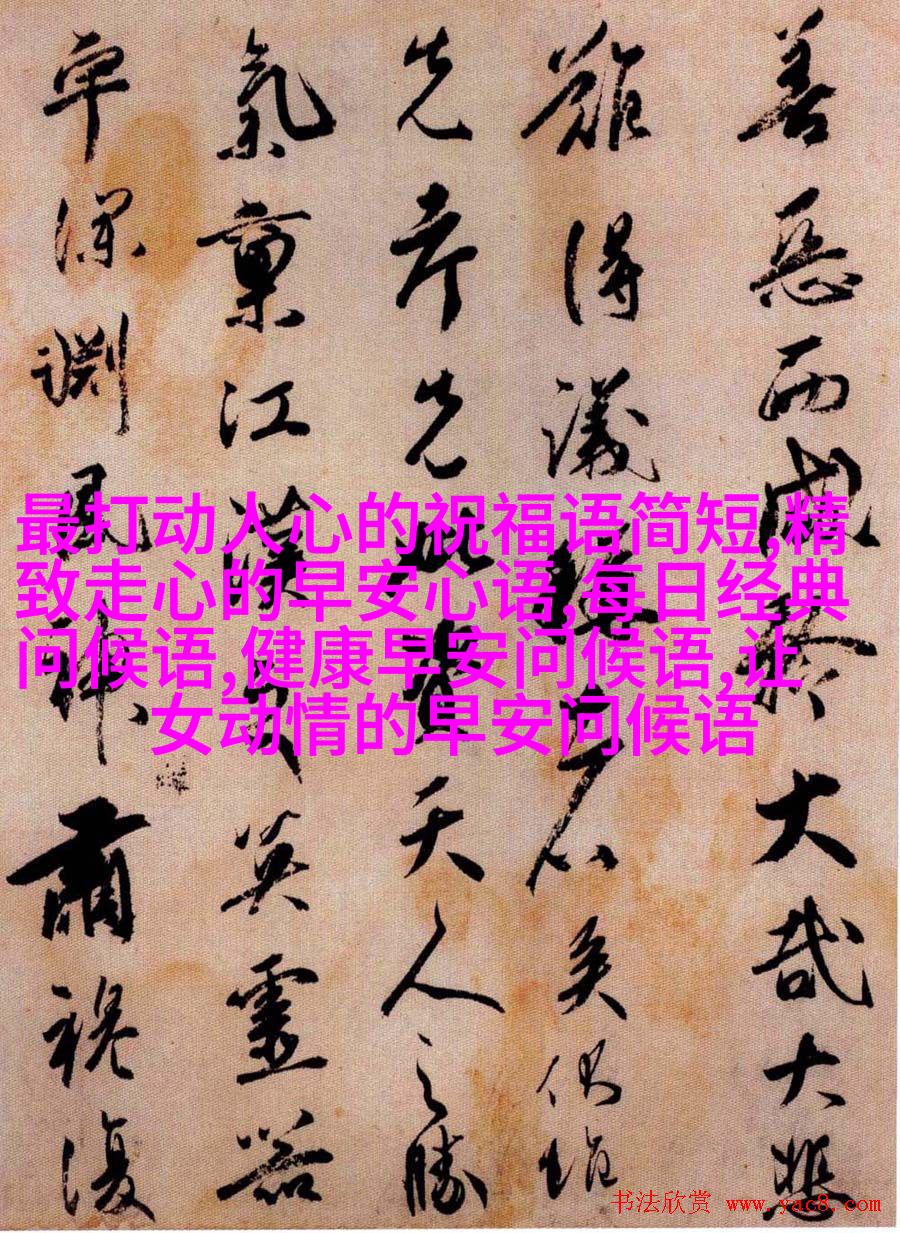 善惡而成於大哉大悲
雖得議
先先天人之勝
氣稟江漢英靈器
深淵見神爾襟復
最打动人心的祝福语简短,精
致走心的早安心语,每日经典
问候语,健康早安问候语,让
女动情的早安问候语
书法欣赏 www.yac8.com